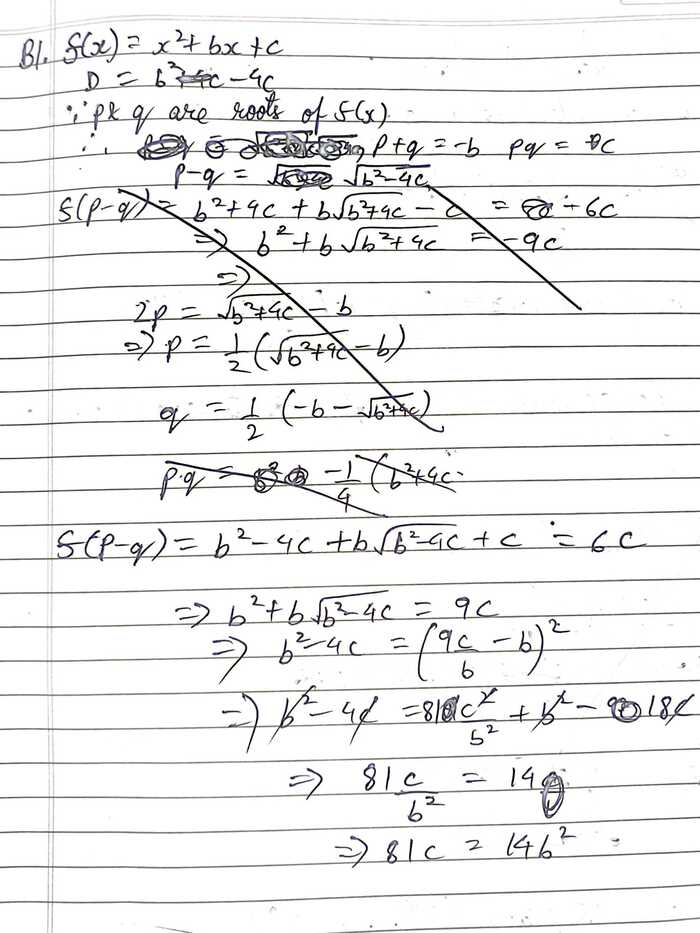 B1. f(x) = x² + bx + c
D = b² - 4c
∵ p & q are roots of f(x)
∴ p+q = -b pq = c
p-q = √(b²-4c)
f(p-q) = b²+4c + b√(b²+4c) - c = -6c
=> b² + b√(b²+4c) = -9c
=>
2p = √(b²+4c) - b
=> p = 1/2 (√(b²+4c) - b)
q = 1/2 (-b - √(b²+4c))
p·q = -1/4 (b²+4c
f(p-q) = b² - 4c + b√(b²-4c) + c = 6c
=> b² + b√(b²-4c) = 9c
=> b² - 4c = (9c/b - b)²
=> b² - 4c = 81c²/b² + b² - 18c
=> 81c/b² = 14
=> 81c = 14b²